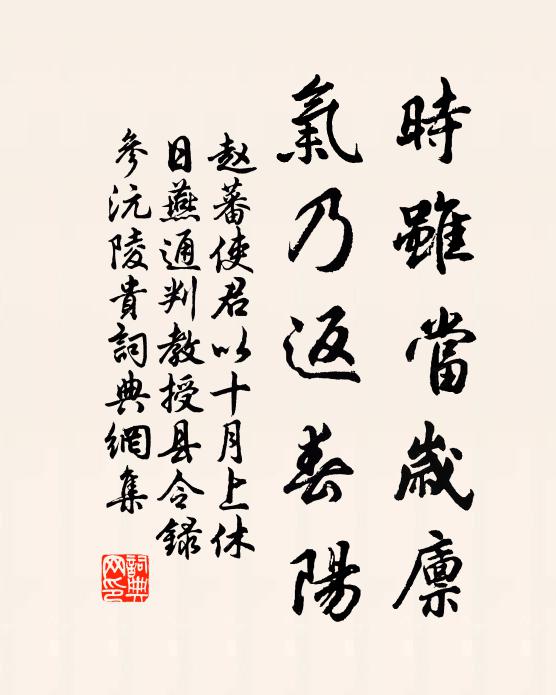 時雖當歲廩
氣乃返春陽
赵蕃使君以十月上休
日燕通判教授县令録
參沅陵貴詞典網集
詞典网印